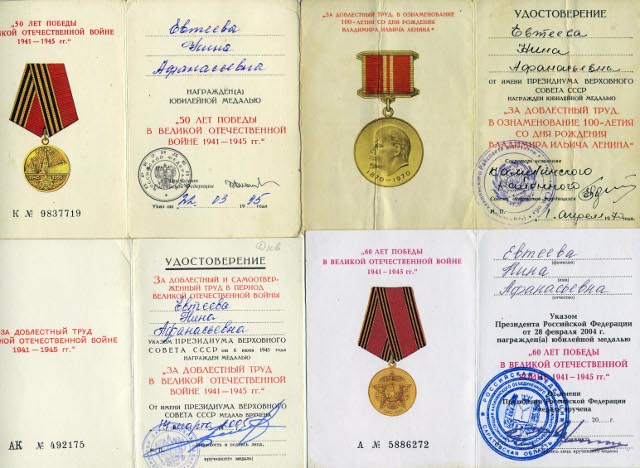 "50 ЛЕТ ПОБЕДЫ
В ВЕЛИКОЙ ОТЕЧЕСТВЕННОЙ ВОЙНЕ
1941—1945 гг."
К № 9837719
Евтеева
Нина
Афанасьевна
НАГРАЖДЕН(А)
ЮБИЛЕЙНОЙ МЕДАЛЬЮ
"50 ЛЕТ ПОБЕДЫ
В ВЕЛИКОЙ ОТЕЧЕСТВЕННОЙ
ВОЙНЕ 1941—1945 гг."
22 03 1995
"ЗА ДОБЛЕСТНЫЙ ТРУД. В ОЗНАМЕНОВАНИЕ
100-ЛЕТИЯ СО ДНЯ РОЖДЕНИЯ
ВЛАДИМИРА ИЛЬИЧА ЛЕНИНА"
1870–1970
УДОСТОВЕРЕНИЕ
Евтеева
Нина
Афанасьевна
ОТ ИМЕНИ ПРЕЗИДИУМА ВЕРХОВНОГО
СОВЕТА СССР
НАГРАЖДЕН ЮБИЛЕЙНОЙ МЕДАЛЬЮ
"ЗА ДОБЛЕСТНЫЙ ТРУД.
В ОЗНАМЕНОВАНИЕ 100-ЛЕТИЯ
СО ДНЯ РОЖДЕНИЯ
ВЛАДИМИРА ИЛЬИЧА ЛЕНИНА"
М. П.
1 апреля
ЗА ДОБЛЕСТНЫЙ ТРУД
В ВЕЛИКОЙ ОТЕЧЕСТВЕННОЙ ВОЙНЕ
1941—1945 гг."
АК № 492175
УДОСТОВЕРЕНИЕ
ЗА ДОБЛЕСТНЫЙ И САМООТВЕР-
ЖЕННЫЙ ТРУД В ПЕРИОД
ВЕЛИКОЙ ОТЕЧЕСТВЕННОЙ ВОЙНЫ
Евтеева
Нина
Афанасьевна
УКАЗОМ ПРЕЗИДИУМА ВЕРХОВНОГО
СОВЕТА СССР от 6 июня 1945 года
НАГРАЖДЕН МЕДАЛЬЮ
"ЗА ДОБЛЕСТНЫЙ ТРУД
В ВЕЛИКОЙ ОТЕЧЕСТВЕННОЙ
ВОЙНЕ 1941—1945 гг."
ОТ ИМЕНИ ПРЕЗИДИУМА ВЕРХОВНОГО
СОВЕТА СССР МЕДАЛЬ ВРУЧЕНА
"60 ЛЕТ ПОБЕДЫ
В ВЕЛИКОЙ ОТЕЧЕСТВЕННОЙ ВОЙНЕ
1941—1945 гг."
А № 5886272
Евтеева
(фамилия)
Нина
(имя)
Афанасьевна
(отчество)
Указом
Президента Российской Федерации
от 28 февраля 2004 г.
награжден(а) юбилейной медалью
"60 ЛЕТ ПОБЕДЫ
В ВЕЛИКОЙ ОТЕЧЕСТВЕННОЙ
ВОЙНЕ 1941—1945 гг."
От имени
Президента Российской Федерации
медаль вручена
20 г.